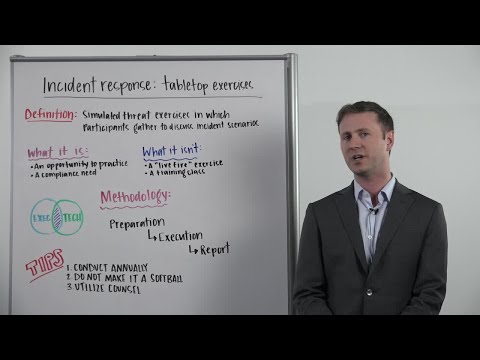 Incident response: tabletop exercises
Definition: Simulated threat exercises in which
participants gather to discuss incident scenarios
What it is:
• An opportunity to practice
• A compliance need
What it isn't:
• A "live fire" exercise
• A training class
EXEC TECH
Methodology:
Preparation
↳ Execution
↳ Report
TIPS
1. CONDUCT ANNUALLY
2. DO NOT MAKE IT A SOFTBALL
3. UTILIZE COUNSEL